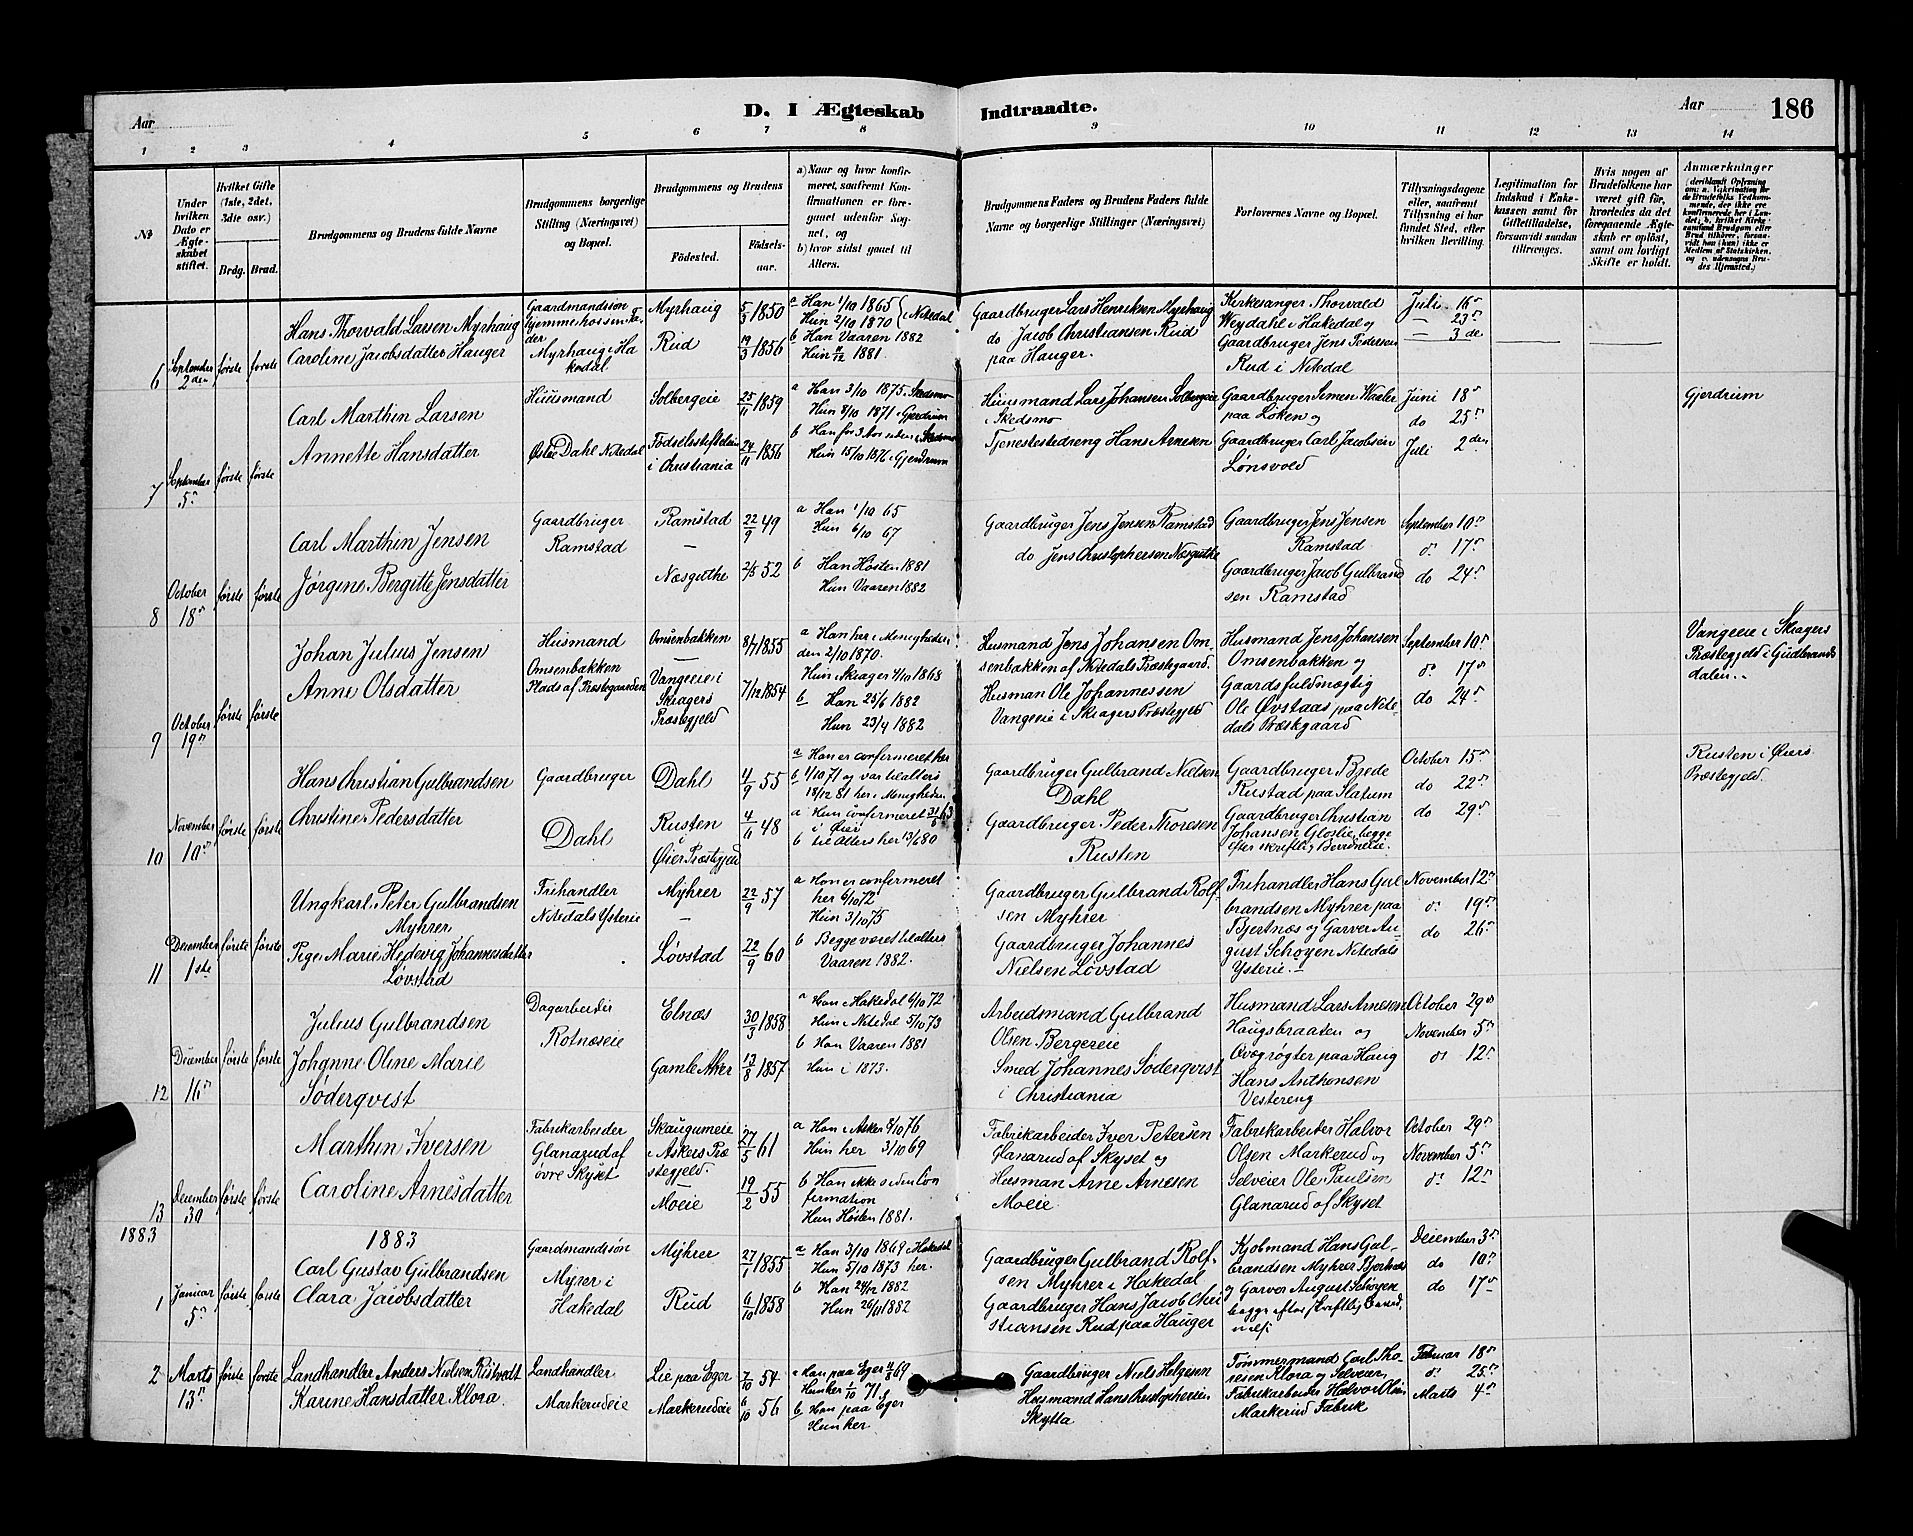 Aar
D. I Ægteskab Indtraadte.
Aar
186
1 2 3 4 5 6 7 8 9 10 11 12 13 14
№
Under hvilken Dato er Ægteskabet stiftet.
Hvilket Gifte (1ste, 2det, 3die osv.)
Brdg. Brud.
Brudgommens og Brudens fulde Navne
Brudgommens borgerlige Stilling (Næringsvei) og Bopæl.
Brudgommens og Brudens
Födested.
Födsels-aar.
a) Naar og hvor konfirmeret, saafremt Konfirmationen er foregaaet udenfor Sognet, og
b) hvor sidst gaaet til Alters.
Brudgommens Faders og Brudens Faders fulde Navne og borgerlige Stillinger (Næringsvei)
Forlovernes Navne og Bopæl.
Tillysningsdagene eller, saafremt Tillysning ei har fundet Sted, efter hvilken Bevilling.
Legitimation for Indskud i Enkekassen samt for Giftetilladelse, forsaavidt saadan tiltrænges.
Hvis nogen af Brudefolkene har været gift för, hvorledes da det foregaaende Ægteskab er oplöst, samt om lovligt Skifte er holdt.
Anmærkninger
6 September 2den første første
Hans Thorvald Larsen Myrhaug
Caroline Jacobsdatter Hauger
Gaardmandssøn
Hjemme hos sin Fader
Myrhaug i Hakedal
Myrhaug 5/3 1850
Rud 19/3 1856
a Han 1/10 1865
Hun 2/10 1870 i Nitedal
b Han Vaaren 1882
Hun 4/12 1881.
Gaardbruger Lars Henriksen Myrhaug
do Jacob Christiansen Rud
paa Hauger.
Kirkesanger Thorvald
Weydahl i Hakedal og
Gaardbruger Jens Pedersen
Rud i Nitedal
Juli 16
23
3de
7 September 5 første første
Carl Marthin Larsen
Annette Hansdatter
Huusmand
Østre Dahl Nitedal
Solbergeie 25/11 1859
Fødselsstiftelsen
i Christiania 24/11 1856
a Han 3/10 1875 i Skedsmo
Hun 8/10 1871 i Gjerdrum
b Han for 3 Aar siden i Skedsmo
Hun 15/10 1876 i Gjerdrum
Huusmand Lars Johansen Solbergeie
i Skedsmo
Tjenestedreng Hans Arnesen
Gaardbruger Simen Waaler
paa Løken og
Gaardbruger Carl Jacobsen
Lønsvold
Juni 18
do 25
Juli 2den
Gjerdrum
8 October 18 første første
Carl Marthin Jensen
Jørgine Bergitte Jensdatter
Gaardbruger
Ramstad
Ramstad 22/9 49
Næsguthe 2/5 52
a Han 1/10 65
Hun 6/10 67
b Han Høsten 1881
Hun Vaaren 1882
Gaardbruger Jens Jensen Ramstad
do Jens Christophersen Næsguthe
Gaardbruger Jens Jensen
Ramstad
Gaardbruger Jacob Gulbrandsen Ramstad
September 10
d° 17
do 24
9 October 19 første første
Johan Julius Jensen
Anne Olsdatter
Husmand
Omsenbakken
Plads af Præstegaarden
Omsenbakken 8/7 1855
Vangeeie i
Skiagers
Præstegjeld 7/12 1854
a Han her i Menigheden
den 2/10 1870.
Hun i Skiager 4/10 1868
b Han 25/6 1882
Hun 23/4 1882
Husmand Jens Johansen Omsenbakken af Nitedals Præstegaard.
Husman Ole Johannessen
Vangeeie i Skiagers Præstegjeld
Husmand Jens Johansen
Omsenbakken og
Gaardsfuldmægtig
Ole Øvstaas paa Nitedals Præstegaard
September 10
d° 17
do 24
Vangeeie i Skiagers
Præstegjeld i Gudbrandsdalen..
10 November 10 første første
Hans Christian Gulbrandsen
Christine Pedersdatter
Gaardbruger
Dahl
Dahl 4/9 55
Rusten 4/11 48
Øier Præstegjeld
a Han er confirmeret her
b 1/10 71 og var til alters
18/12 81 her i Menigheden
a Hun confirmeret 63
i Øier
b til Alters her 13/6 80
Gaardbruger Gulbrand Nielsen
Dahl
Gaardbruger Peder Thoresen
Rusten
Gaardbruger Brede
Rustad paa Slatum
Gaardbruger Christian
Johansen Gloslie, begge
efter skriftlig Bevidnelse.
October 15
do 22
do 29
Rusten i Øiers
Præstegjeld.
11 December 1ste første første
Ungkarl Peter Gulbrandsen
Myhrer
Pige Marie Hedevig Johannesdatter
Løvstad
Frihandler
Nitedals Ysterie
Myhrer 22/9 57
Løvstad 22/9 60
a Han er confirmeret
her 6/10 72
Hun 3/10 75
b Begge været til alters
Vaaren 1882.
Gaardbruger Gulbrand Rolfsen Myhrer
Gaardbruger Johannes
Nielsen Løvstad
Frihandler Hans Gulbrandsen Myhrer paa
Bjertnæs og Garver August Schøyen Nitedals
Ysterie.
November 12
d° 19
do 26
12 December 16 første første
Julius Gulbrandsen
Johanne Oline Marie
Søderqvist
Dagarbeider
Rotnæseie
Elnæs 30/3 1858
Gamle Aker 13/8 1857
a Han i Hakedal 6/10 72
Hun i Nitedal 5/10 73
b Han Vaaren 1881
Hun i 1873.
Arbeidsmand Gulbrand
Olsen Bergereie
Smed Johannes Søderqvist
i Christiania
Husmand Lars Arnesen
Haugsbraaten og
Qvægrøgter paa Haug
Hans Anthonsen
Vestereng
October 29
November 5
d° 12
13 December 30 første første
Marthin Iversen
Caroline Arnesdatter
Fabrikarbeider
Glanarud af
øvre Skyset
Skaugumeie
i Askers Præstegjeld. 27/5 61
Moeie 19/2 55
a Han i Asker 8/10 76
Hun her 3/10 69
b Han ikke siden Confirmation
Hun Høsten 1881.
Fabrikarbeider Iver Petersen
Glanarud af Skyset og
Husman Arne Arnesen
Moeie
Fabrikarbeider Halvor
Olsen Markerud og
Selveier Ole Paulsen
Glanarud af Skyset
October 29
November 5
d° 12
1883
1883
1 Januar 5 første første
Carl Gustav Gulbrandsen
Clara Jacobsdatter
Gaardmandssøn
Myrer i
Hakedal
Myhrer 27/1 1855
Rud 6/10 1858
a Han 3/10 1869 i Hakedal
Hun 5/10 1873 her.
b Han 24/12 1882
Hun 26/11 1882
Gaardbruger Gulbrand Rolfsen Myhrer i Hakedal
Gaardbruger Hans Jacob Christiansen Rud paa Hauger
Kjobmand Hans Gulbrandsen Myhrer Bjertnæs
og Garver August Schøyen
begge efter skriftlig Bevidnelse
December 3
do 10
do 17
2 Marts 13 første første
Landhandler Anders Nielsen Ristvedt
Karine Hansdatter Klora.
Landhandler
Markerudeie
Lie paa Eger 7/10 54
Markerudeie 6/10 56
a Han paa Eger 69
Hun her 1/10 71
b Han paa Eger
Hun her
Gaardbruger Niels Helgesen
Husmand Hans Christophersen
Skytta
Tømmermand Carl Thoresen Klora og Selveier,
Fabrikarbeider Halvor Olsen
Markerud Fabrik
Februar 18
d° 25
Marts 4